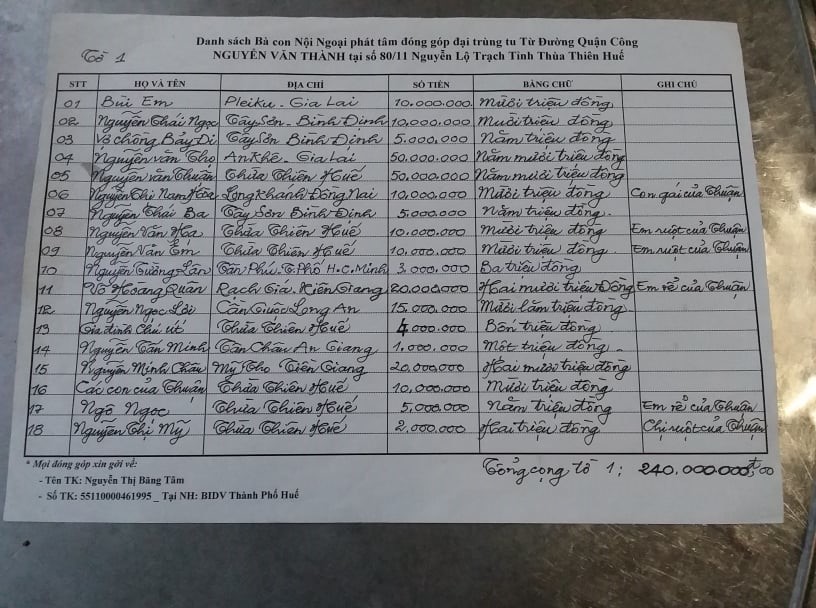 Tờ 1
Danh sách Bà con Nội Ngoại phát tâm đóng góp đại trùng tu Từ Đường Quận Công
NGUYỄN VĂN THÀNH tại số 80/11 Nguyễn Lộ Trạch Tỉnh Thừa Thiên Huế
STT HỌ VÀ TÊN ĐỊA CHỈ SỐ TIỀN BẰNG CHỮ GHI CHÚ
01 Bùi Em Pleiku - Gia Lai 10.000.000 Mười triệu đồng
02 Nguyễn Thái Ngọc Tây Sơn - Bình Định 10.000.000 Mười triệu đồng
03 Vợ chồng Bảy Di Tây Sơn Bình Định 5.000.000 Năm triệu đồng
04 Nguyễn Văn Thọ An Khê - Gia Lai 50.000.000 Năm mươi triệu đồng
05 Nguyễn văn Thuận Thừa Thiên Huế 50.000.000 Năm mươi triệu đồng
06 Nguyễn Thị Nam Hòa Long Khánh Đồng Nai 10.000.000 Mười triệu đồng Con gái của Thuận
07 Nguyễn Thái Ba Tây Sơn Bình Định 5.000.000 Năm triệu đồng
08 Nguyễn Văn Hòa Thừa Thiên Huế 10.000.000 Mười triệu đồng Em ruột của Thuận
09 Nguyễn Văn Em Thừa Thiên Huế 10.000.000 Mười triệu đồng Em ruột của Thuận
10 Nguyễn Tường Lân Tân Phú. T.Phố H.C.Minh 3.000.000 Ba triệu đồng
11 Võ Hoàng Quân Rạch Giá. Kiên Giang 20.000.000 Hai mươi triệu Đồng Em rể của Thuận
12 Nguyễn Ngọc Lợi Cần Giuộc Long An 15.000.000 Mười lăm triệu đồng
13 Gia đình Chú út Thừa Thiên Huế 4.000.000 Bốn triệu đồng
14 Nguyễn Tấn Minh Tân Châu An Giang 1.000.000 Một triệu đồng
15 Nguyễn Minh Châu Mỹ Tho Tiền Giang 20.000.000 Hai mươi triệu đồng
16 Các con của Thuận Thừa Thiên Huế 10.000.000 Mười triệu đồng
17 Ngô Ngọc Thừa Thiên Huế 5.000.000 Năm triệu đồng Em rể của Thuận
18 Nguyễn Thị Mỹ Thừa Thiên Huế 2.000.000 Hai triệu đồng Chị ruột của Thuận
* Mọi đóng góp xin gởi về:
Tổng cộng tờ 1: 240.000.000đ,00
- Tên TK: Nguyễn Thị Băng Tâm
- Số TK: 55110000461995 _ Tại NH: BIDV Thành Phố Huế